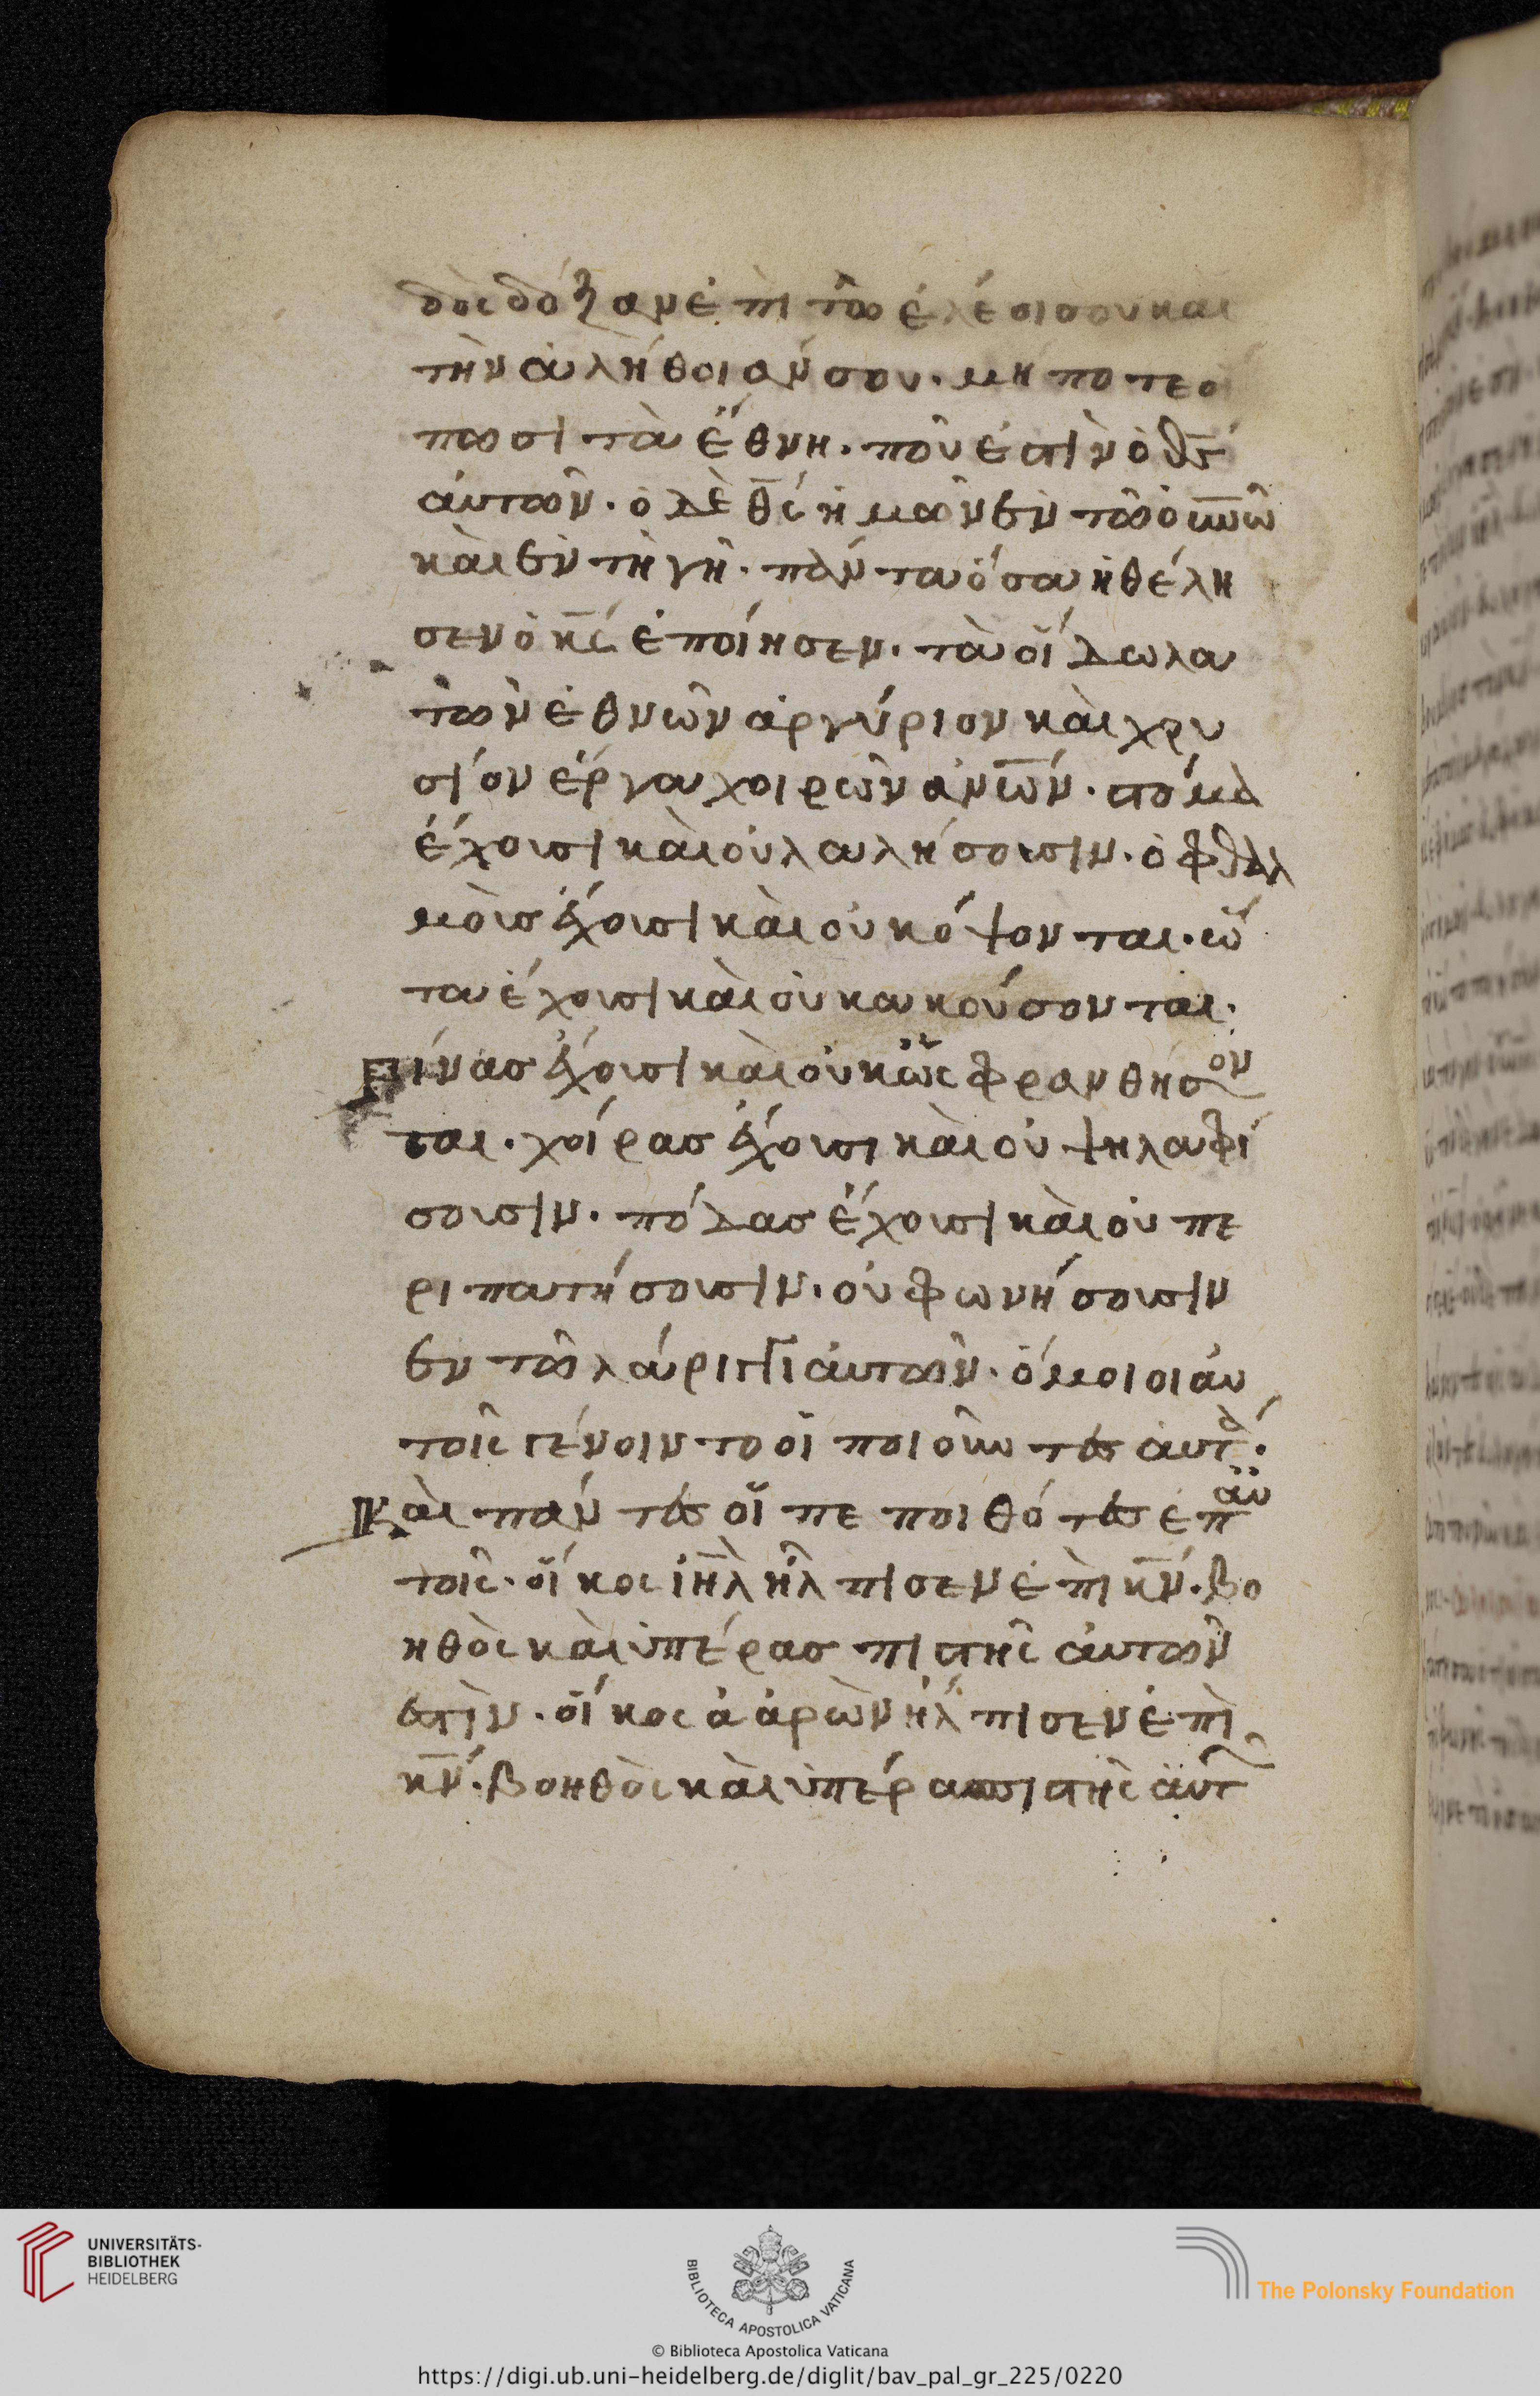 δὸς δόξαν ἐπὶ τῶ ἐλέει σου καὶ
τὴν ἀλήθειάν σου. μή ποτε εἴ
πωσι τὰ ἔθνη. ποῦ ἐστὶν ὁ θς
αὐτῶν. ὁ δὲ θς ἡμῶν ἐν τῶ ουνω
καὶ ἐν τῆ γῆ. πάντα ὅσα ἠθέλη
σεν ὁ κς ἐποίησεν. τὰ εἴδωλα
τῶν ἐθνῶν ἀργύριον καὶ χρυ
σίον ἔργα χειρῶν ανων. στόμα
ἔχουσι καὶ οὐ λαλήσουσιν. ὀφθαλ
μοὺς ἔχουσι καὶ οὐκ ὄψονται. ὦ
τα ἔχουσι καὶ οὐκ ἀκούσονται.
ῥίνας ἔχουσι καὶ οὐκ ὠσφρανθήσον
ται. χεῖρας ἔχουσι καὶ οὐ ψηλαφή
σουσιν. πόδας ἔχουσι καὶ οὐ πε
ριπατήσουσιν. οὐ φωνήσουσιν
ἐν τῶ λάρυγγι αὐτῶν. ὅμοιοι αὐ
τοῖς γένοιντο οἱ ποιοῦντες αὐτά.
Καὶ πάντες οἱ πεποιθότες ἐπ αὐ
τοῖς. οἶκος ιηλ ἤλπισεν ἐπὶ κν. βο
ηθὸς καὶ ὑπερασπιστὴς αὐτῶν
ἐστὶν. οἶκος ἀαρὼν ἤλπισεν ἐπὶ
κν. βοηθὸς καὶ ὑπερασπιστὴς αὐτ
UNIVERSITÄTS-
BIBLIOTHEK
HEIDELBERG
BIBLIOTECA APOSTOLICA VATICANA
The Polonsky Foundation
© Biblioteca Apostolica Vaticana
https://digi.ub.uni-heidelberg.de/diglit/bav_pal_gr_225/0220